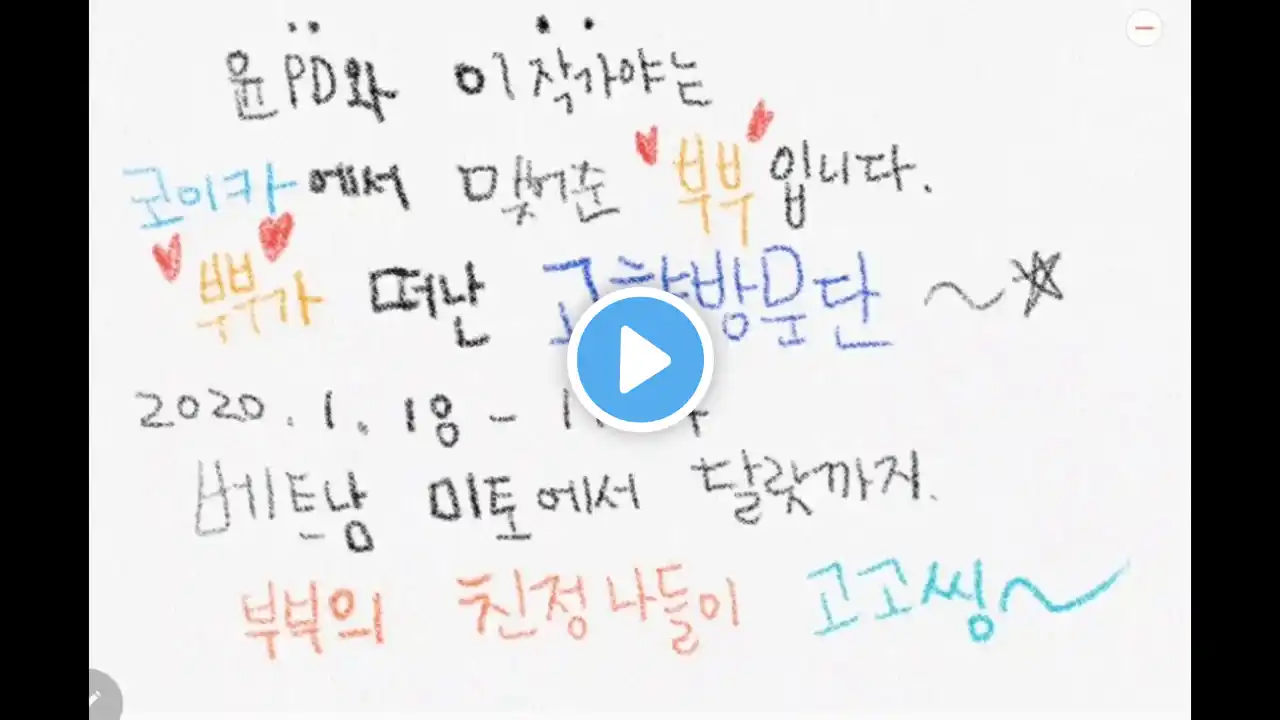 윤PD와 이작가야는
코이카에서 맺어준 부부입니다.
부부가 떠난 고향방문단~
2020. 1. 18 -
베트남 미토에서 달랏까지.
부부의 친정나들이 고고씽~